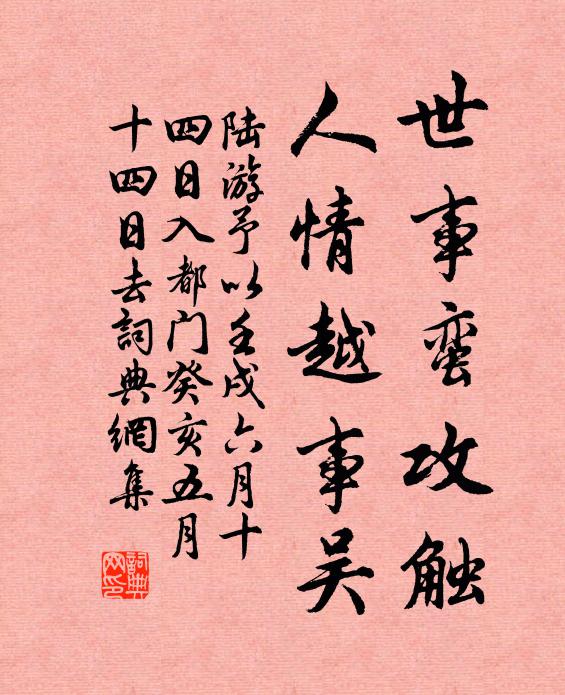 世事蛮攻触
人情越事吴
陆游予以壬戌六月十
四日入都门癸亥五月
十四日去詞典網集
詞典网印